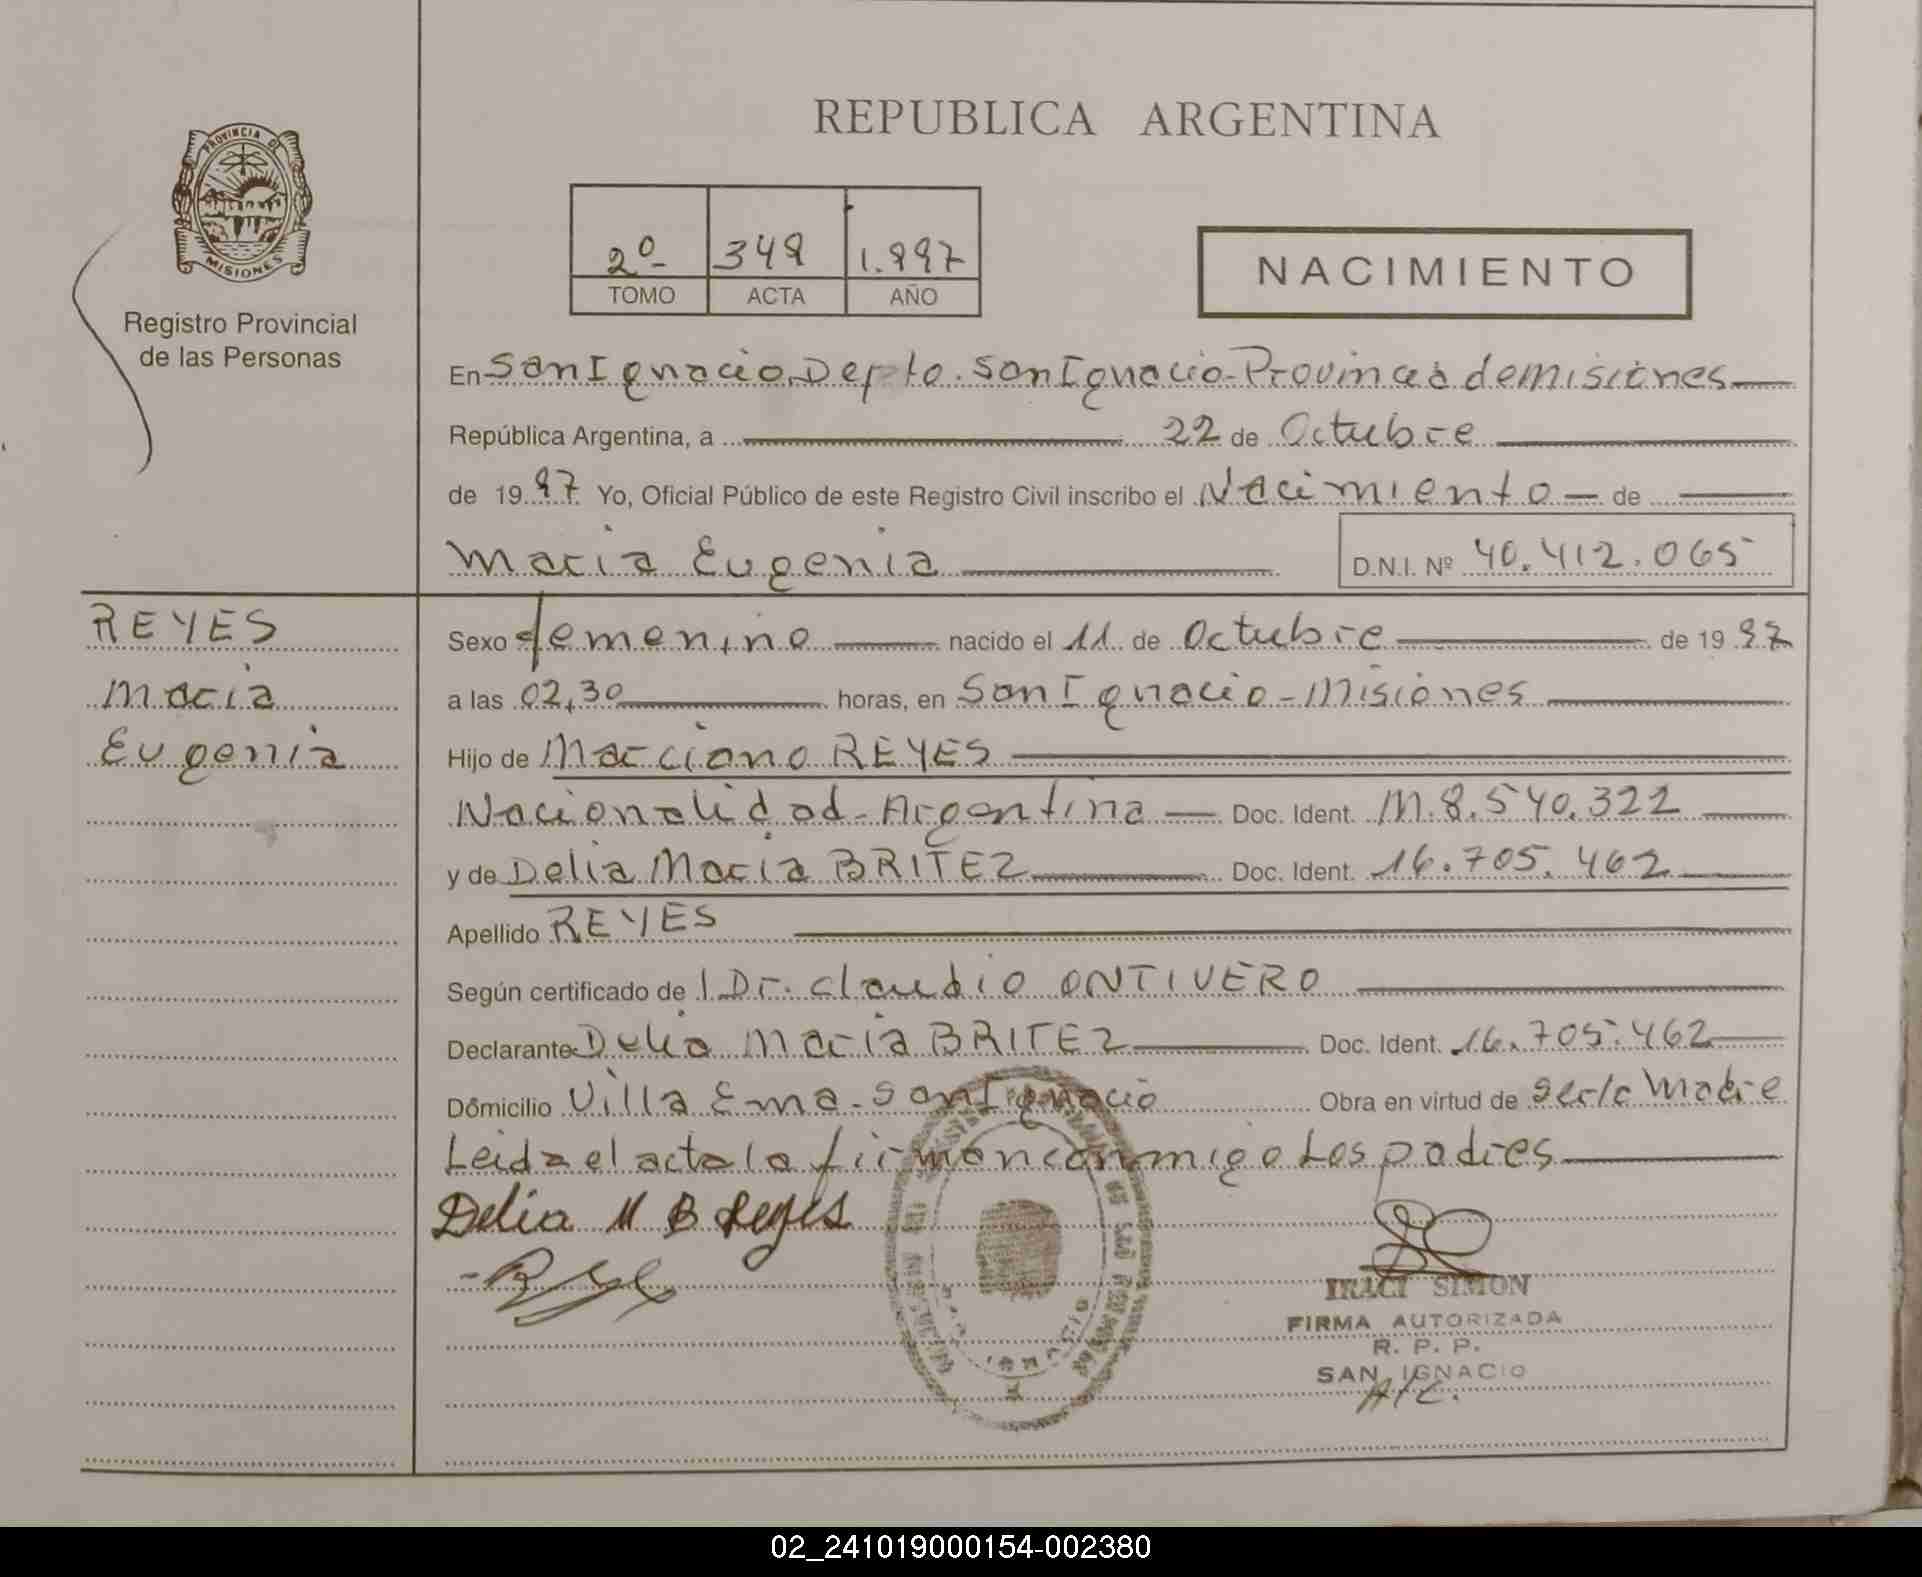 REPUBLICA ARGENTINA
PROVINCIA DE
MISIONES
Registro Provincial
de las Personas
2º 349 1.997
TOMO ACTA AÑO
NACIMIENTO
En San Ignacio. Depto. San Ignacio - Provincia de misiones
República Argentina, a 22 de Octubre
de 1997 Yo, Oficial Público de este Registro Civil inscribo el Nacimiento de
Maria Eugenia D.N.I. Nº 40.412.065
REYES
Maria
Eugenia
Sexo femenino nacido el 11 de Octubre de 1997
a las 02,30 horas, en San Ignacio - Misiones
Hijo de Marciano REYES
Nacionalidad - Argentina Doc. Ident. M.8.540.322
y de Delia Maria BRITEZ Doc. Ident. 16.705.462
Apellido REYES
Según certificado del Dr. Claudio ONTIVERO
Declarante Delia Maria BRITEZ Doc. Ident. 16.705.462
Domicilio Villa Ema - San Ignacio Obra en virtud de ser la Madre
Leida el acta la firman conmigo Los padres
Delia M B Reyes
IRACI SIMON
FIRMA AUTORIZADA
R. P. P.
SAN IGNACIO
A/C.
02_241019000154-002380